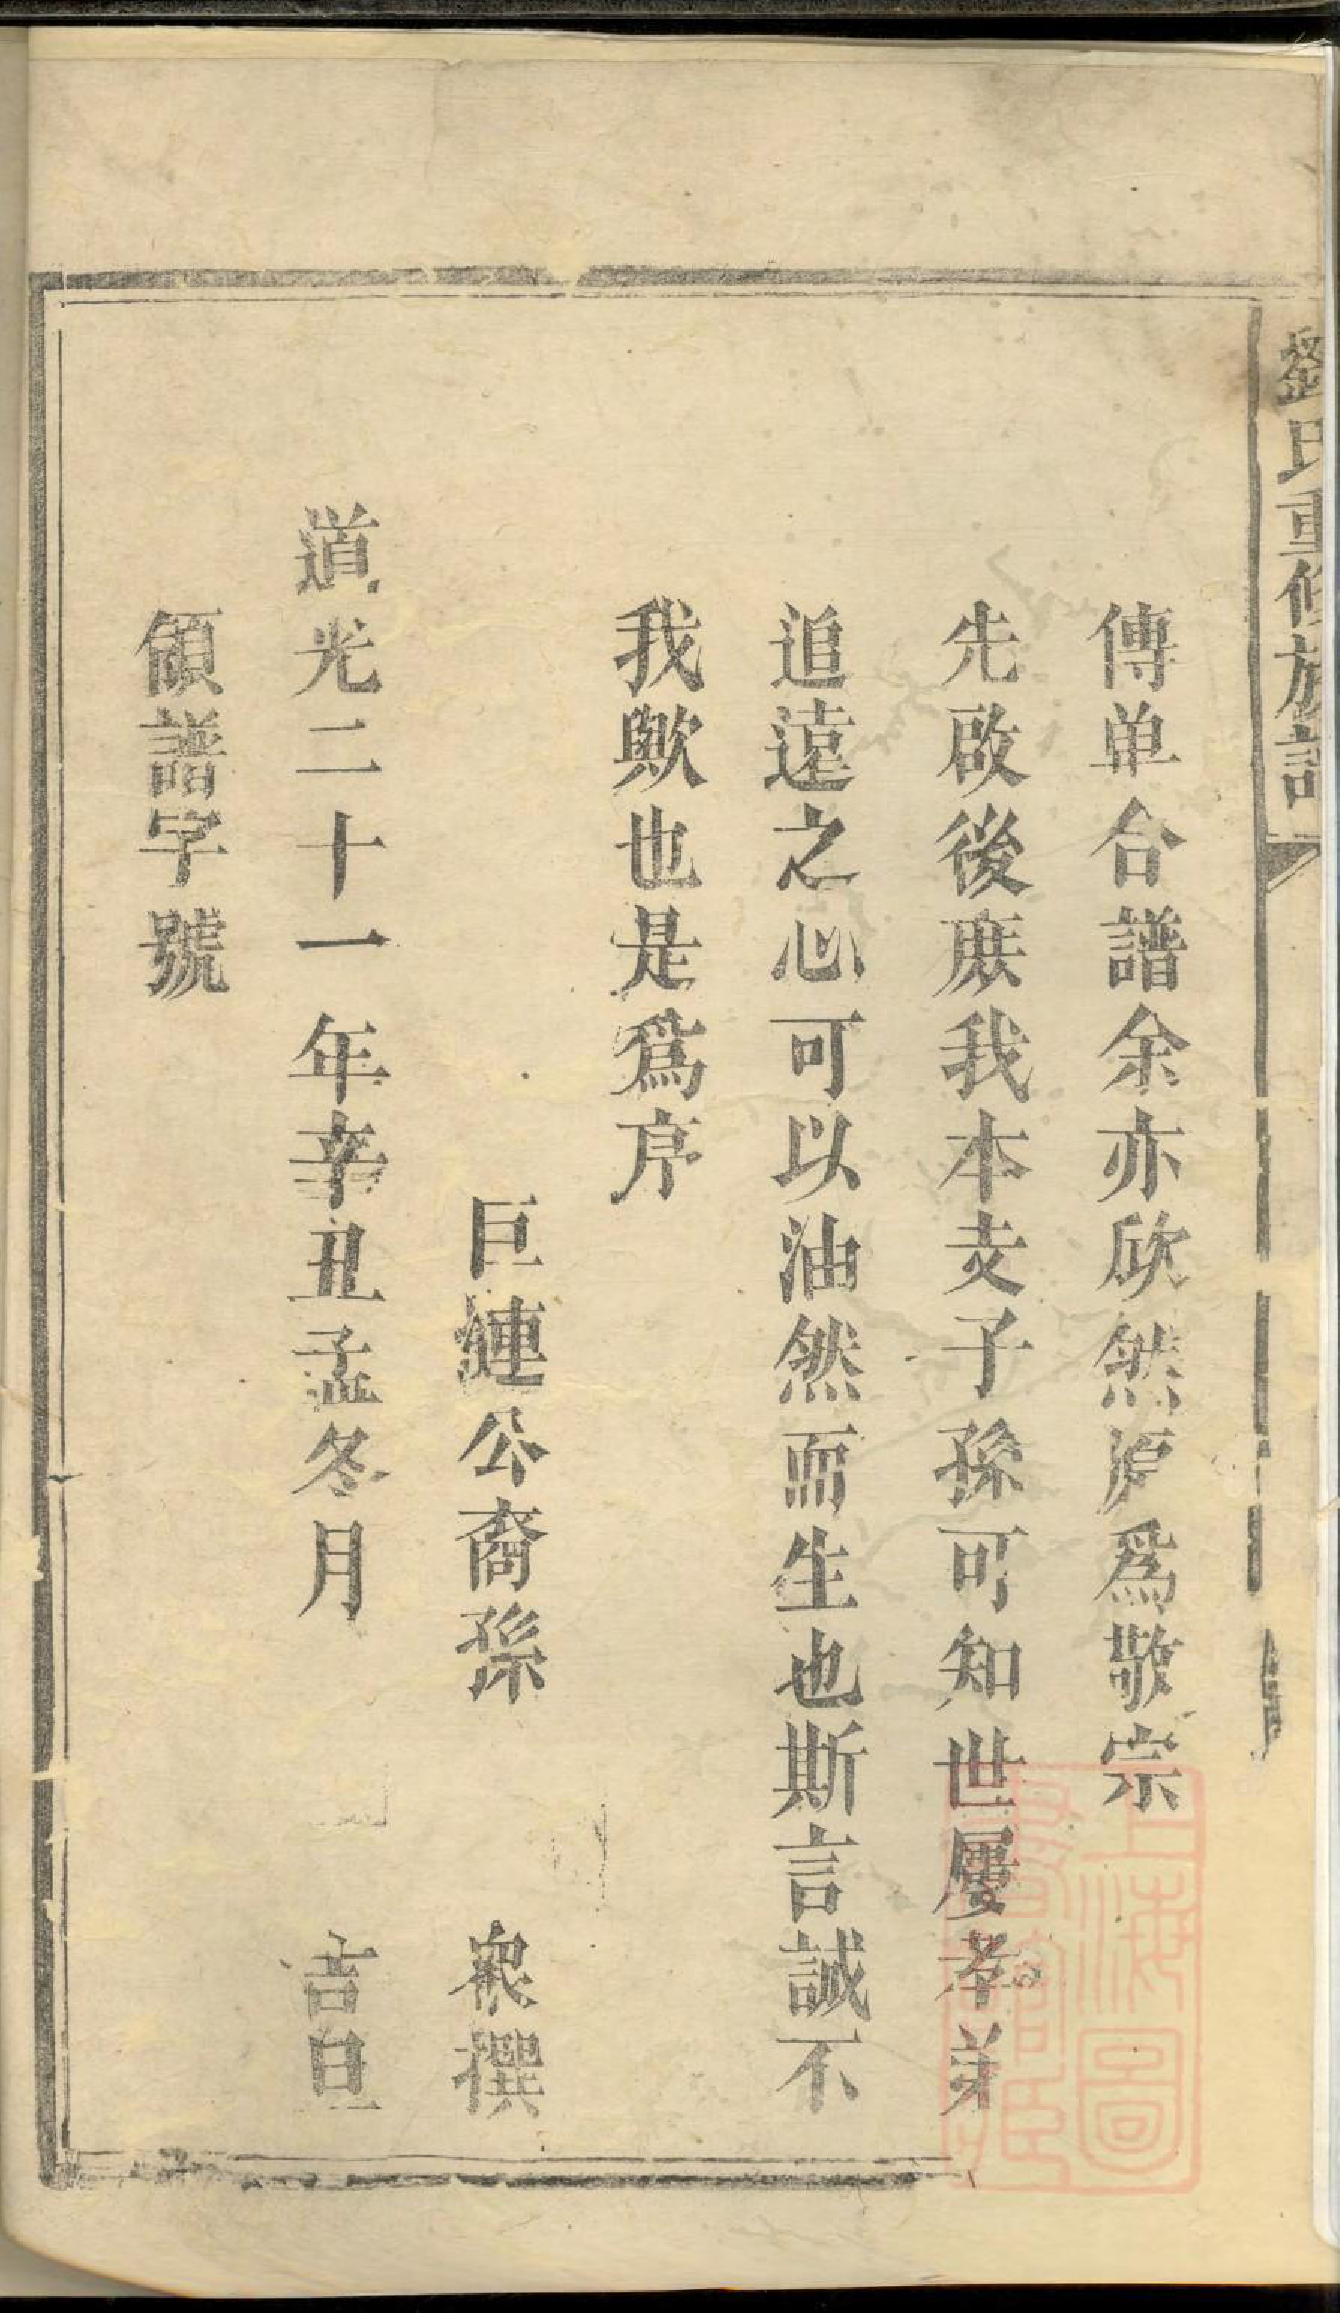 劉氏重修族譜
傳单合譜余亦欣然序爲敬宗
先啟後庶我本支子孫可知世屢孝弟
追遠之心可以油然而生也斯言誠不
我歟也是爲序
巨縺公裔孫 衆撰
道光二十一年辛丑孟冬月 吉旦
領譜字號
上海圖書館藏